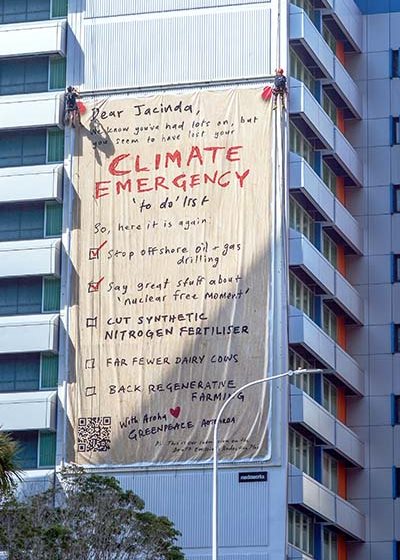 Dear Jacinda,
I know you've had lots on, but
you seem to have lost your
CLIMATE
EMERGENCY
'to do' list
So, here it is again:
Stop offshore oil + gas
drilling
Say great stuff about
'nuclear free moment'
CUT SYNTHETIC
NITROGEN FERTILISER
FAR FEWER DAIRY COWS
BACK REGENERATIVE
FARMING
With Aroha
GREENPEACE AOTEAROA
PS: This is our submission on the
Draft Emissions Reduction Plan